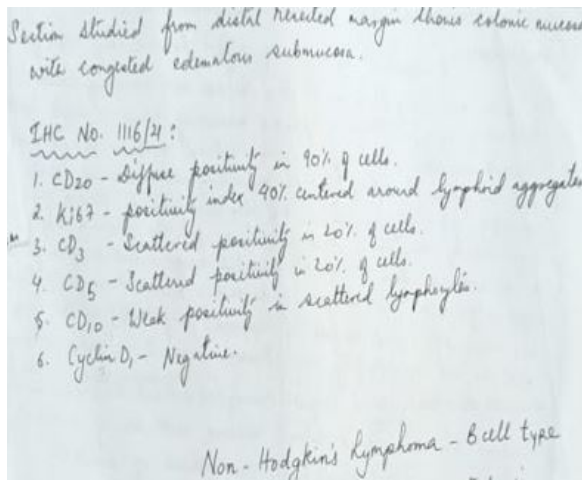 Section studied from distal resected margin shows colonic mucosa
with congested edematous submucosa.
IHC No. 1116/21:
1. CD20 - Diffuse positivity in 90% of cells.
2. Ki67 - positivity index 40% centered around lymphoid aggregates
3. CD3 - Scattered positivity in 20% of cells.
4. CD5 - Scattered positivity in 20% of cells.
5. CD10 - Weak positivity in scattered lymphocytes.
6. Cyclin D1 - Negative.
Non - Hodgkin's Lymphoma - B cell type